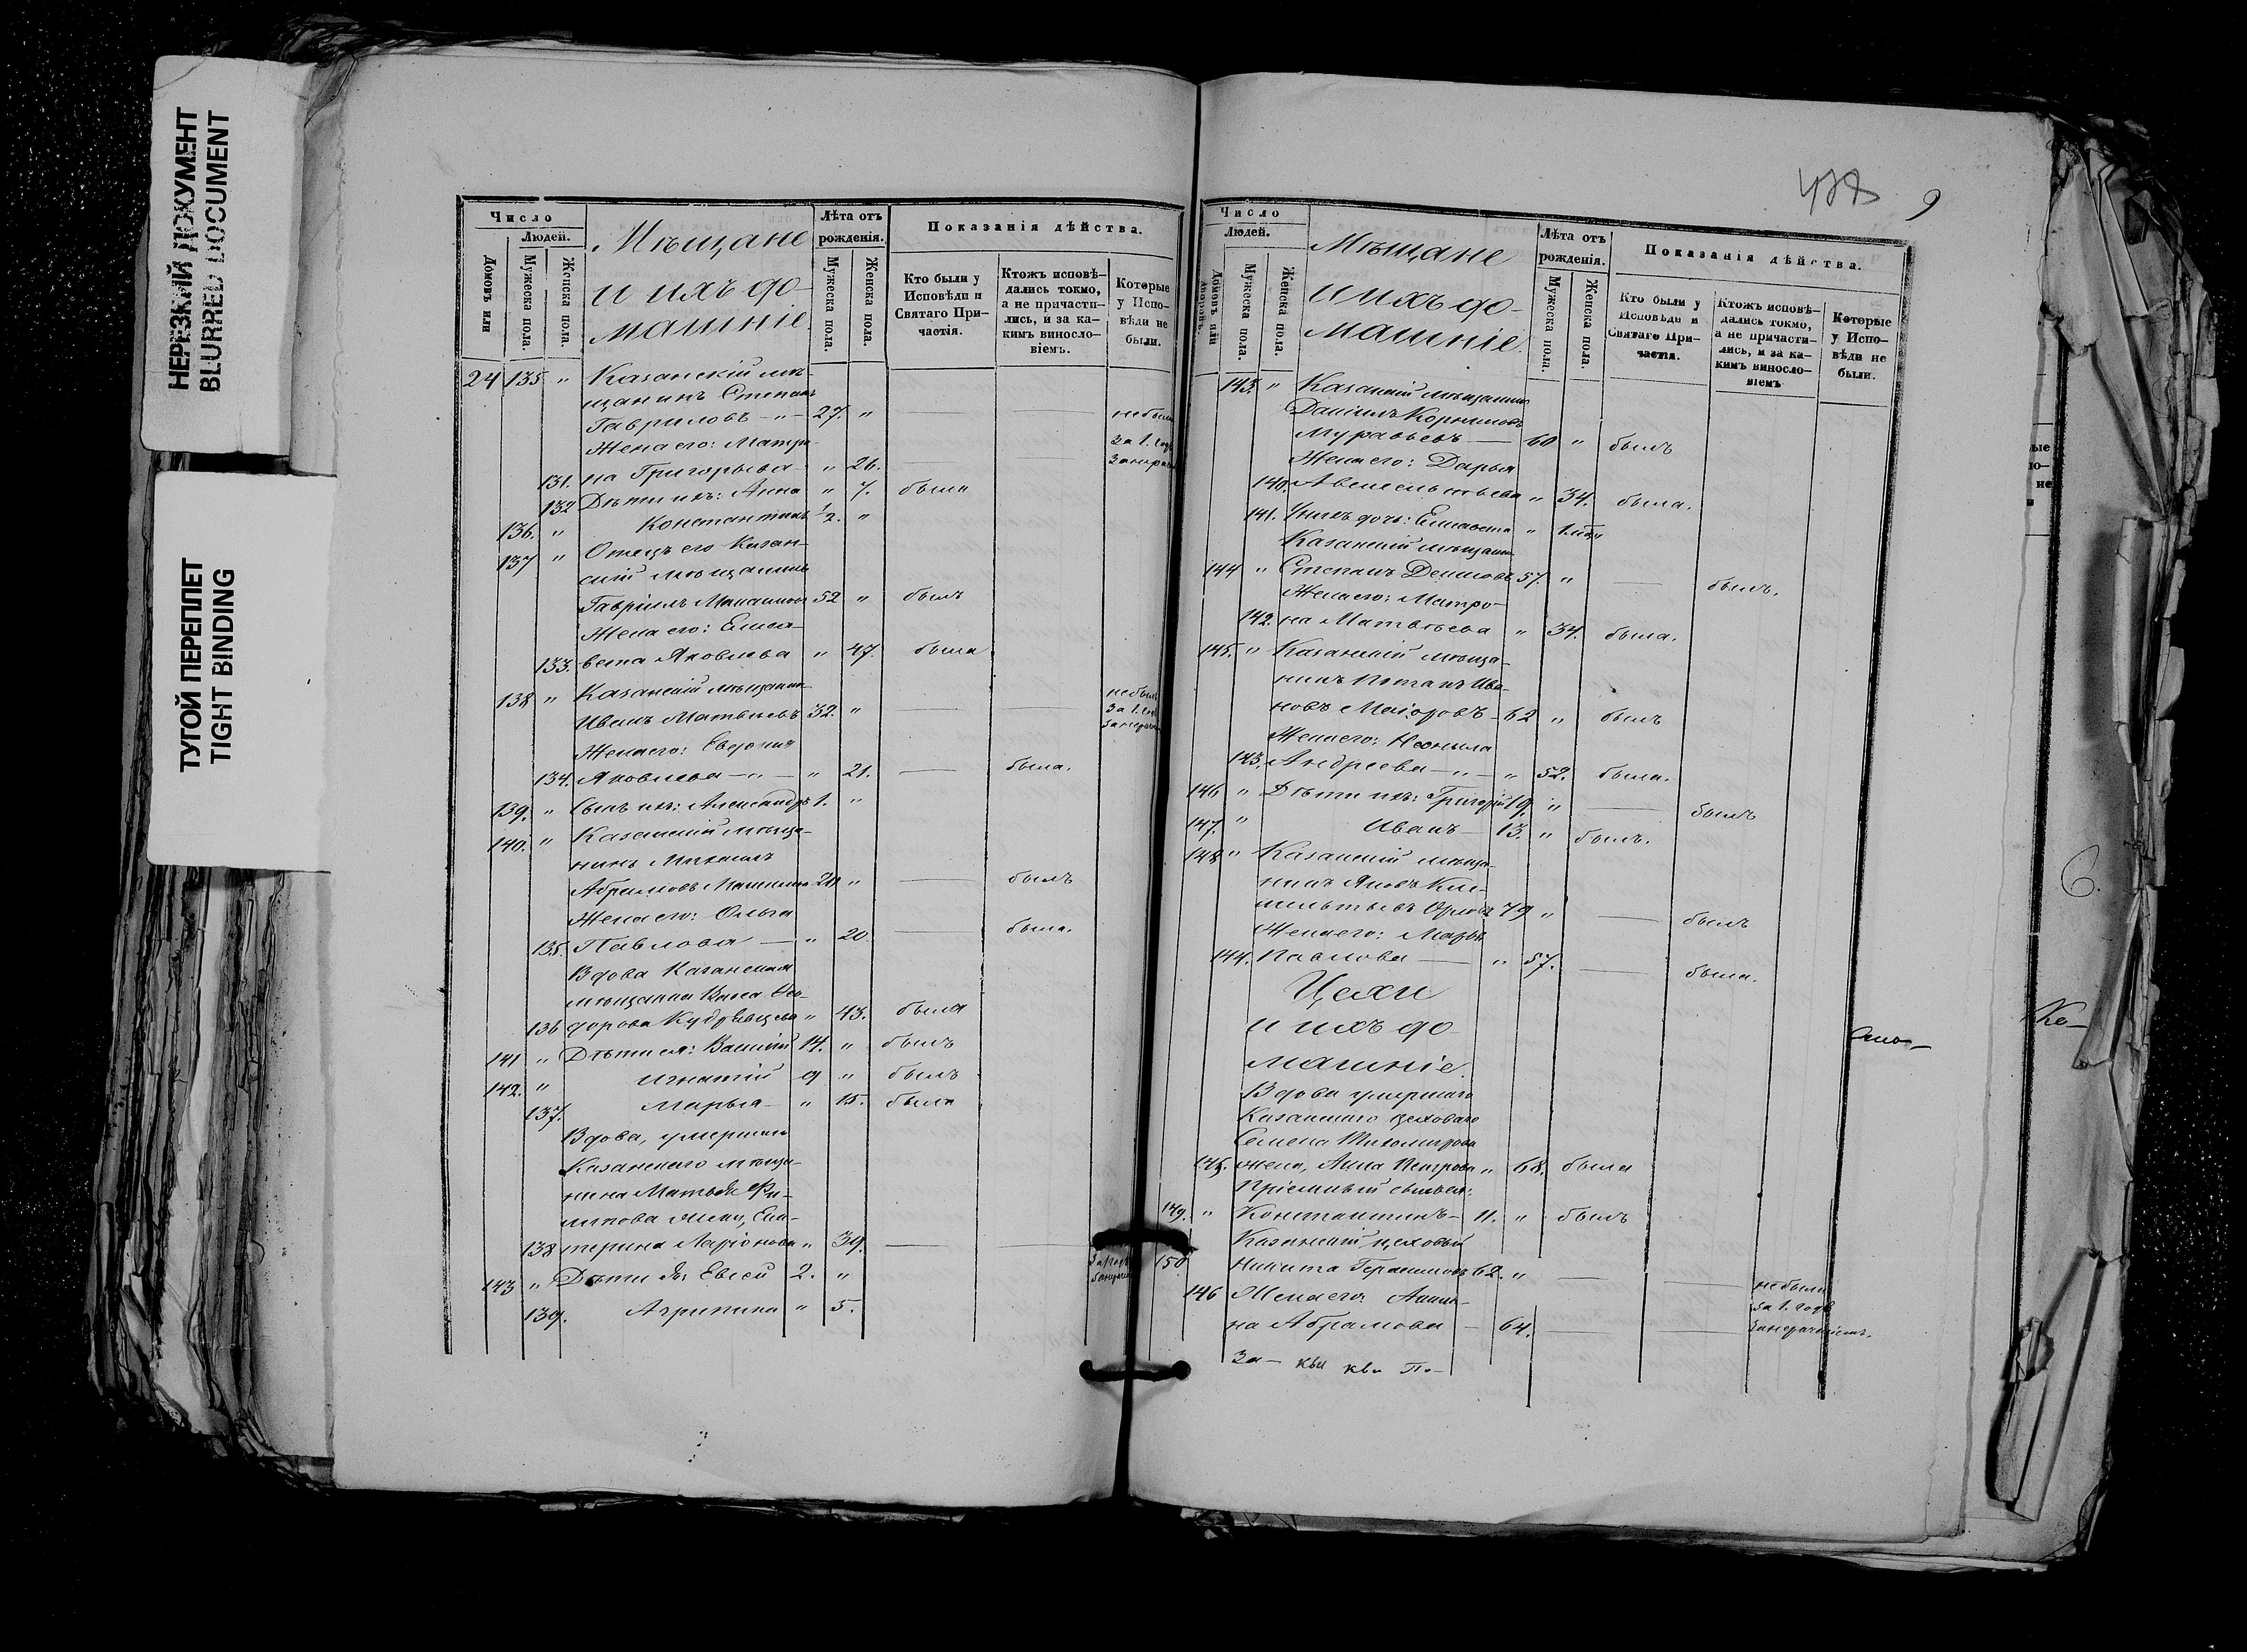 НЕРЕЗКИЙ ДОКУМЕНТ
BLURRED DOCUMENT
ТУГОЙ ПЕРЕПЛЕТ
TIGHT BINDING
Число
Людей.
Домовъ или
Мужеска пола.
Женска пола.
Мѣщане
и ихъ до-
машніе.
Лѣта отъ
рожденія.
Мужеска пола.
Женска пола.
Показанія дѣйства.
Кто были у
Исповѣди и
Святаго При-
частія.
Ктожъ исповѣ-
дались токмо,
а не причасти-
лись, и за ка-
кимъ виносло-
віемъ.
Которые
у Испо-
вѣди не
были.
24 135 " Казанскій мѣ-
щанинъ Степанъ
Гавриловъ - " - 27. " не были
Жена его: Матре- за 1. годъ
131. на Григорьева " 26.
132 Дѣти ихъ: Анна " 7. была
136. " Константинъ 1/2. "
137 " Отецъ его Казан-
скій мѣщанинъ
Гавріилъ 52 " былъ
Жена его: Елиса-
133. вета Яковлева " 47. была
138 " Казанскій мѣщанинъ не былъ
Иванъ Матвѣевъ 32. " за 1. годъ
Жена его:
134. Яковлева - " - " 21. была.
139. " Сынъ ихъ: Александръ 1. "
140. " Казанскій мѣща-
нинъ Михаилъ
Абрамовъ 20 " былъ
Жена его: Ольга
135. Павлова " 20. была.
Вдова Казанская
мѣщанка Ѳео-
136 дорова " 43. была
141 " Дѣти ея: Василій 14. " былъ
142. " Игнатій 9 " былъ
137. Марья " 15. была
Вдова, умершаго
Казанскаго мѣща-
нина Фи-
липова жена, Ека-
138 терина Ларіонова " 39.
143 " Дѣти Евсей 2. "
139. Агрипина " 5.
478 9
Число
Людей.
Домовъ или
дворовъ.
Мужеска пола.
Женска пола.
Мѣщане
и ихъ до-
машніе.
Лѣта отъ
рожденія.
Мужеска пола.
Женска пола.
Показанія дѣйства.
Кто были у
Исповѣди и
Святаго При-
частія.
Ктожъ исповѣ-
дались токмо,
а не причасти-
лись, и за ка-
кимъ виносло-
віемъ
Которые
у Испо-
вѣди не
были.
143. " Казанскій мѣщанинъ
Даніилъ Корниловъ
Муравьевъ 60 " былъ
Жена его: Дарья
140. " 34. была.
141. У нихъ дочь: Елисавета "
Казанскій мѣщанинъ
144 " Степанъ 57. " былъ.
Жена его: Матро-
142. на Матвѣева " 34. была.
145. " Казанскій мѣща-
нинъ Потапъ Ива-
новъ Маіоровъ 62 " былъ
Жена его: Неонила
143. Андреева - " - " 52. была.
146 " Дѣти ихъ: Григорій 19. " былъ
147. " Иванъ 13. " былъ.
148 " Казанскій мѣща-
нинъ Яковъ Кли-
ментьевъ Орловъ 79 " былъ
Жена его: Марья
144. Павлова " 57. была.
Цехи
и ихъ до-
машніе.
Вдова умершаго
Казанскаго цеховаго
Семена Тихомирова
145. жена, Анна Петрова " 68. была
Пріемный сынъ ея:
149. " Константинъ 11. " былъ
Казанскій цеховый
150 Никита Герасимовъ 62. " не были
146 Жена его: Анни- за 1. годъ
на Абрамова 64.
За-
6.